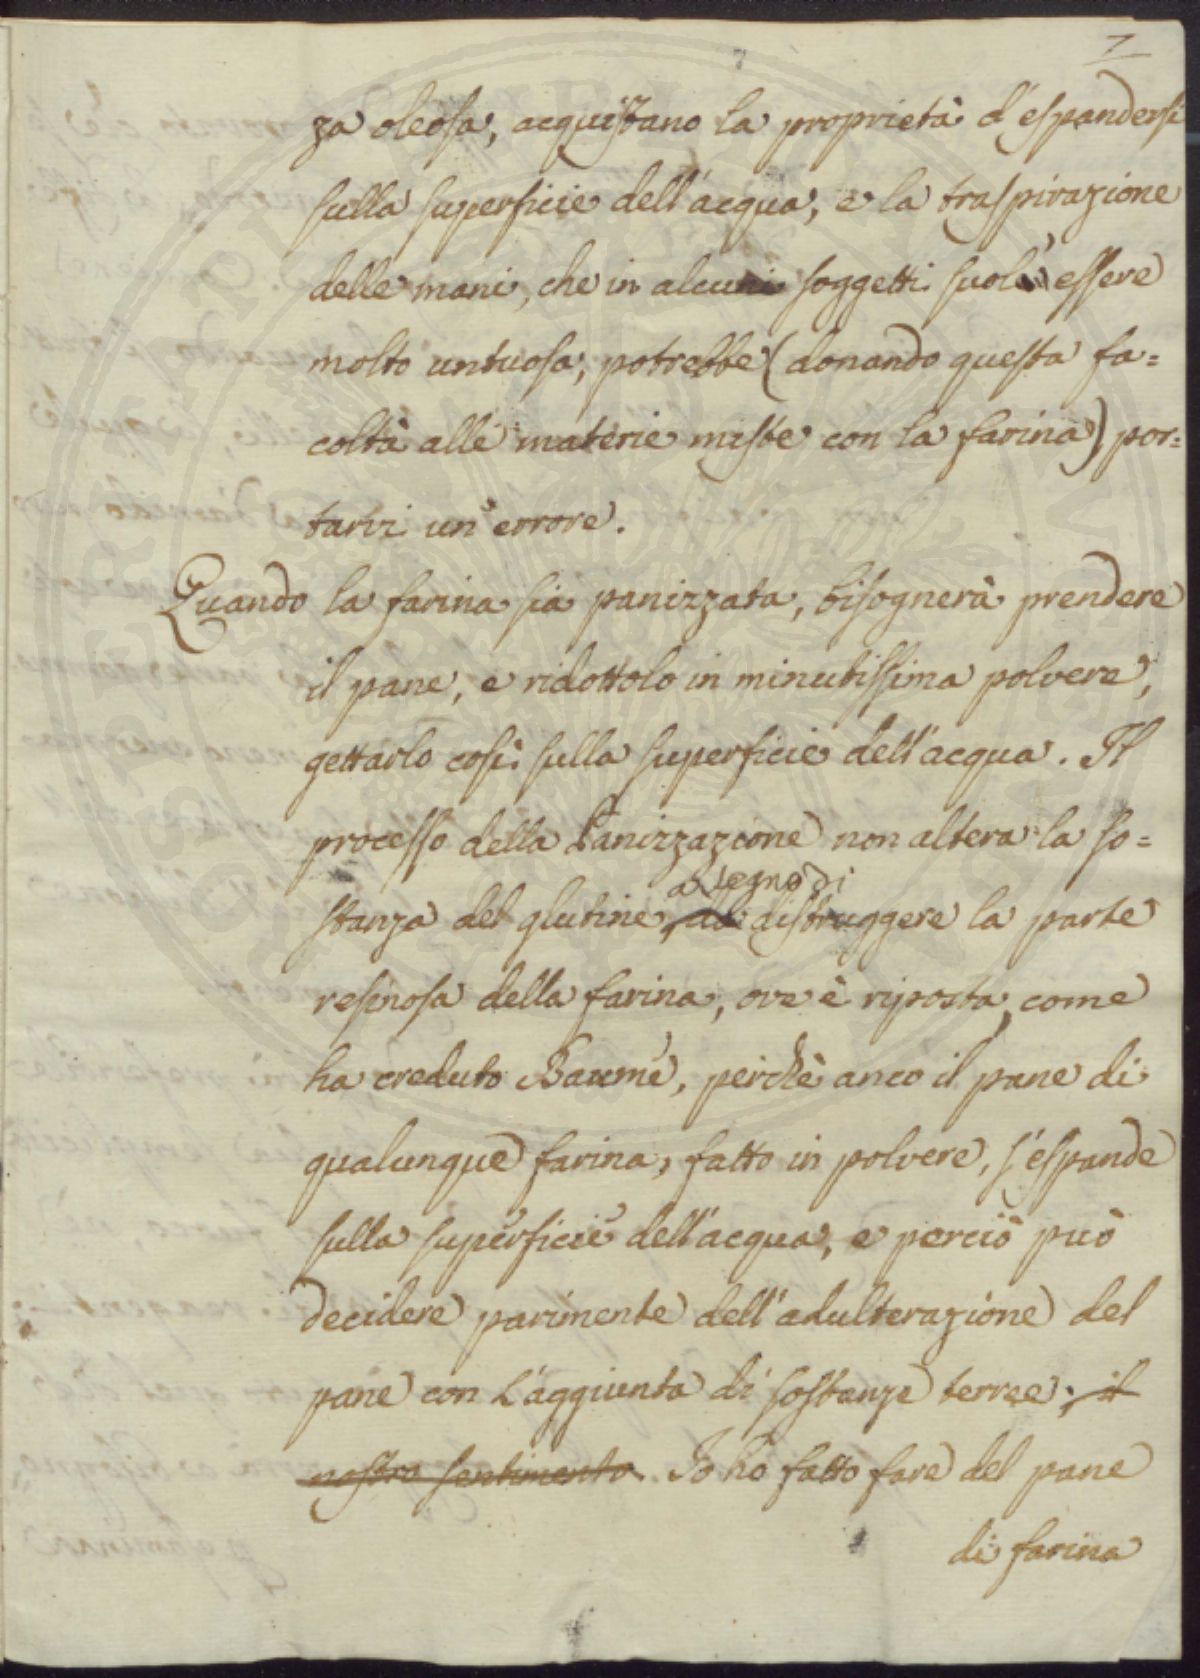 7
za oleosa, acquistano la proprietà d'espandersi
sulla superficie dell'acqua, e la traspirazione
delle mani, che in alcuni soggetti suol essere
molto untuosa, potrebbe (donando questa fa=
coltà alle materie miste con la farina) por=
tarvi un'errore.
Quando la farina sia panizzata, bisognerà prendere
il pane, e ridottolo in minutissima polvere,
gettarlo così sulla superficie dell'acqua. Il
processo della Panizzazione non altera la so=
a segno di
stanza del glutine, distruggere la parte
resinosa della farina, ove è riposta, come
ha creduto Baumé, perchè anco il pane di
qualunque farina, fatto in polvere, s'espande
sulla superficie dell'acqua, e perciò può
decidere parimente dell'adulterazione del
pane con l'aggiunta di sostanze terree. il
nostro sentimento. Io ho fatto fare del pane
di farina